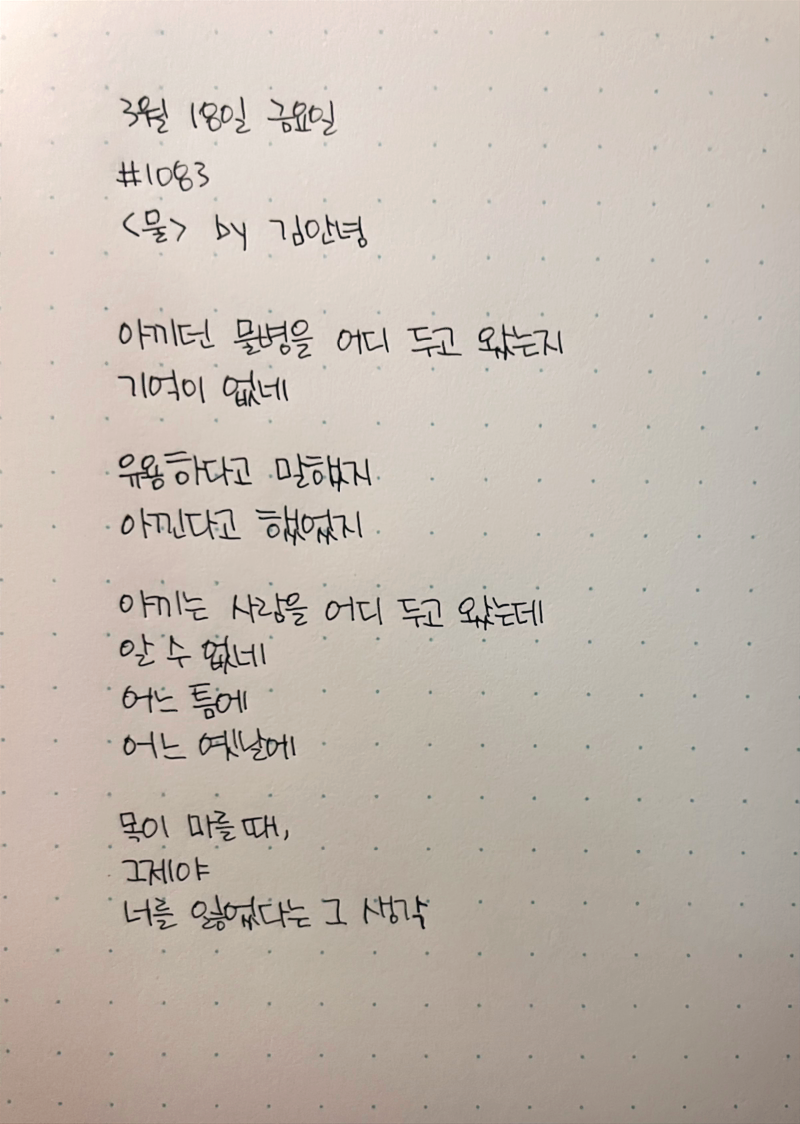 3월 18일 금요일
#1083
<물> by 김안녕
아끼던 물병을 어디 두고 왔는지
기억이 없네
유용하다고 말했지
아낀다고 했었지
아끼는 사람을 어디 두고 왔는데
알 수 없네
어느 틈에
어느 옛날에
목이 마를 때,
그제야
너를 잃었다는 그 생각